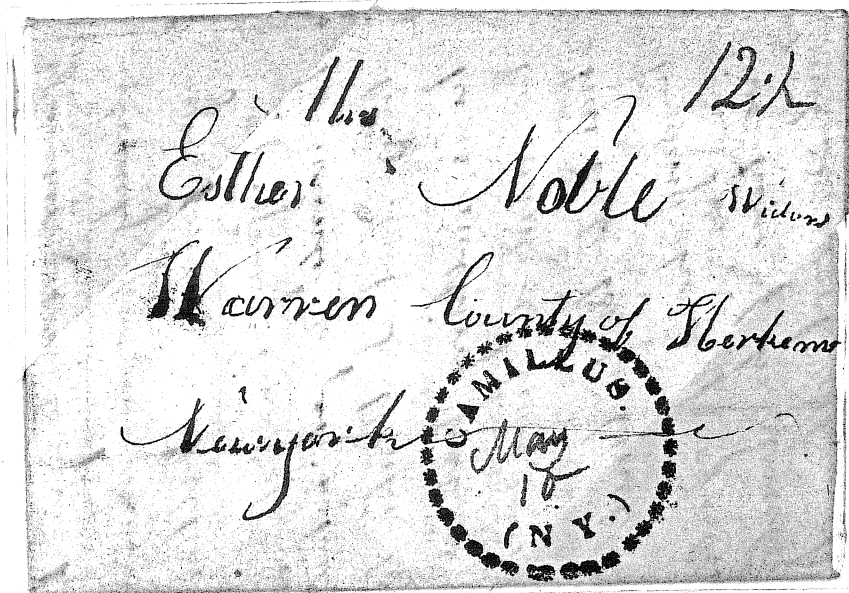 12½
Mrs
Esther Noble Widow
Warren County of Herkemer
Newyork
CAMILLUS.
May
18
(N.Y.)